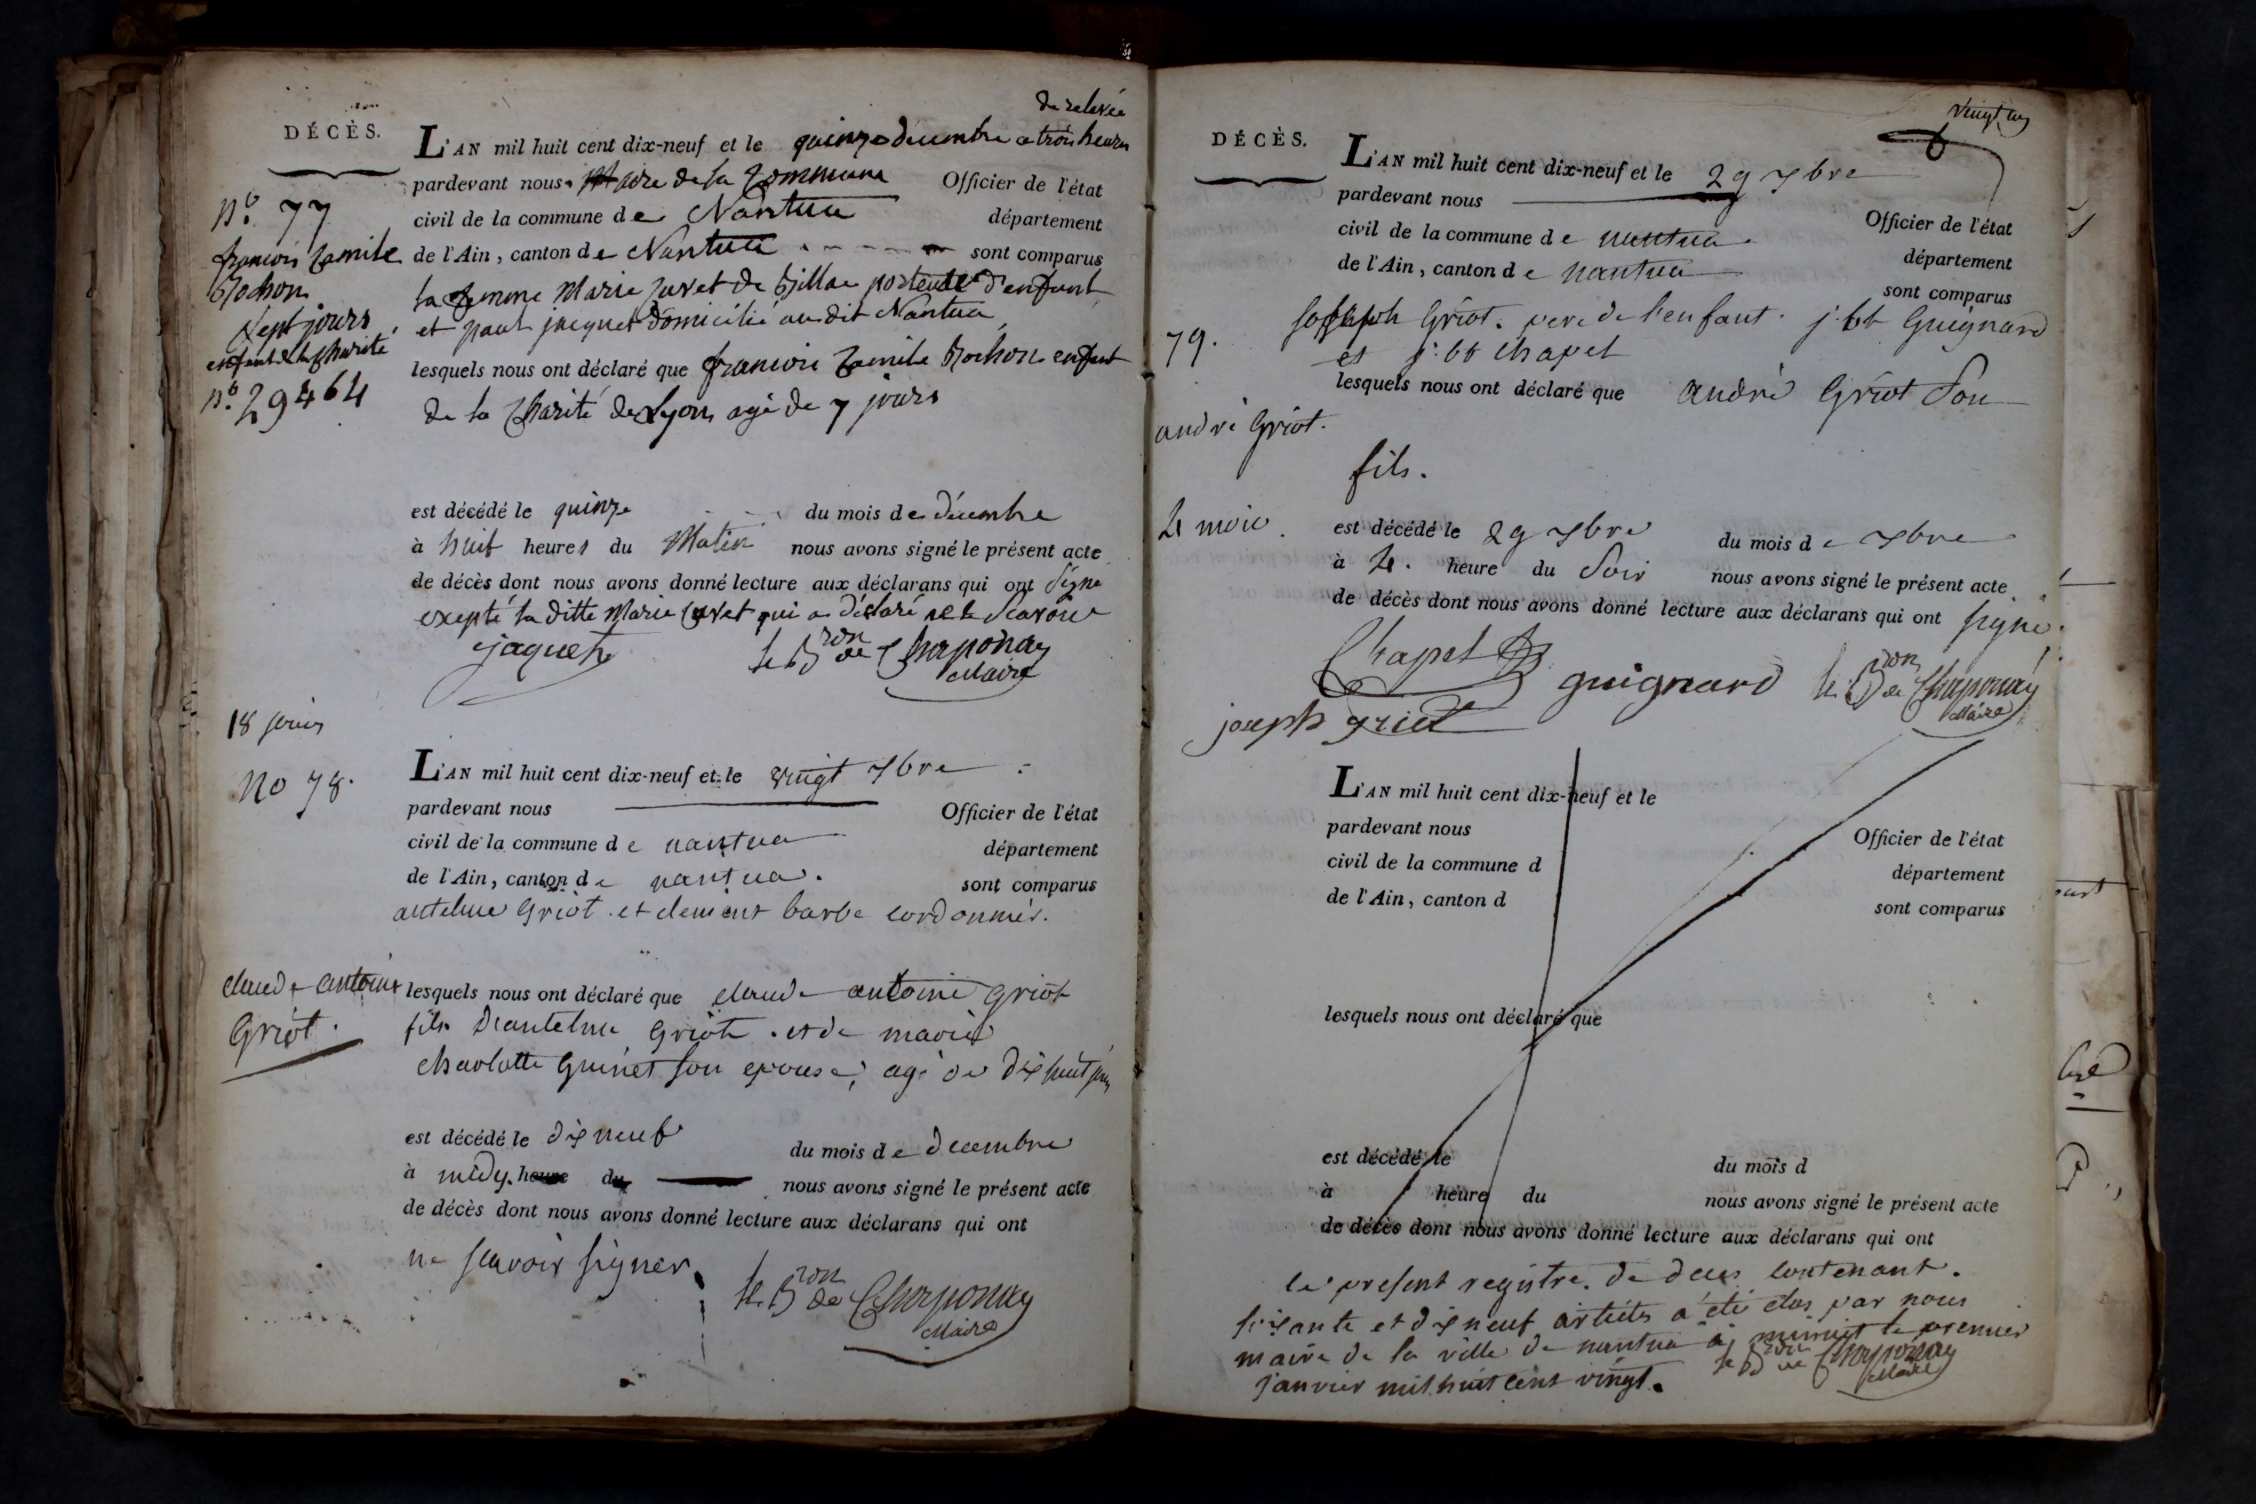 DÉCÈS.
de relevée
L'AN mil huit cent dix-neuf et le quinze decembre a trois heures
pardevant nous Maire de la Commune Officier de l'état
civil de la commune de Nantua département
de l'Ain, canton de Nantua sont comparus
la femme Marie juret de porteuse d'enfant
et paul jacquet domicilié au dit Nantua
lesquels nous ont déclaré que francois Camile Rochon enfant
de la Charité de Lyon agé de 7 jours
n.° 77
francois Camile
Rochon
Sept jours
enfant de la Charité
n.° 29464
est décédé le quinze du mois de décembre
à huit heures du Matin nous avons signé le présent acte
de décès dont nous avons donné lecture aux déclarans qui ont signé
exepté la ditte Marie juret qui a déclaré ne le Scavoir
jaquet le B.ron de Chaponay
Maire
18 jours
no 78.
L'AN mil huit cent dix-neuf et le vingt Xbre
pardevant nous Officier de l'état
civil de la commune de nantua département
de l'Ain, canton de nantua. sont comparus
antelme Griot. et clement barbe cordonnier.
claude antoine
Griot.
lesquels nous ont déclaré que claude antoine Griot
fils d'antelme Griot. et de marie
charlotte Guinet son epouse, agé de dix huit jours
est décédé le dix neuf du mois de decembre
à midy. heure du nous avons signé le présent acte
de décès dont nous avons donné lecture aux déclarans qui ont
ne scavoir signer.
le B.ron de Chaponay
Maire
DÉCÈS.
L'AN mil huit cent dix-neuf et le 29 Xbre
pardevant nous Officier de l'état
civil de la commune de nantua département
de l'Ain, canton de nantua sont comparus
Joseph Griot. pere de l'enfant. j. bt Guignard
et j. bt Chapel
79.
lesquels nous ont déclaré que andré Griot Son
andré Griot.
fils.
4 mois.
est décédé le 29 Xbre du mois de Xbre
à 4. heure du Soir nous avons signé le présent acte
de décès dont nous avons donné lecture aux déclarans qui ont signé.
Chapel guignard le B.ron de Chaponay
Maire
joseph griot
L'AN mil huit cent dix-neuf et le
pardevant nous Officier de l'état
civil de la commune d département
de l'Ain, canton d sont comparus
lesquels nous ont déclaré que
est décédé le du mois d
à heure du nous avons signé le présent acte
de décès dont nous avons donné lecture aux déclarans qui ont
le present registre de deces contenant.
soixante et dix neuf articles a été clos par nous
maire de la ville de nantua à minuit le premier
janvier mil huit cent vingt.
le B.ron de Chaponay
Maire